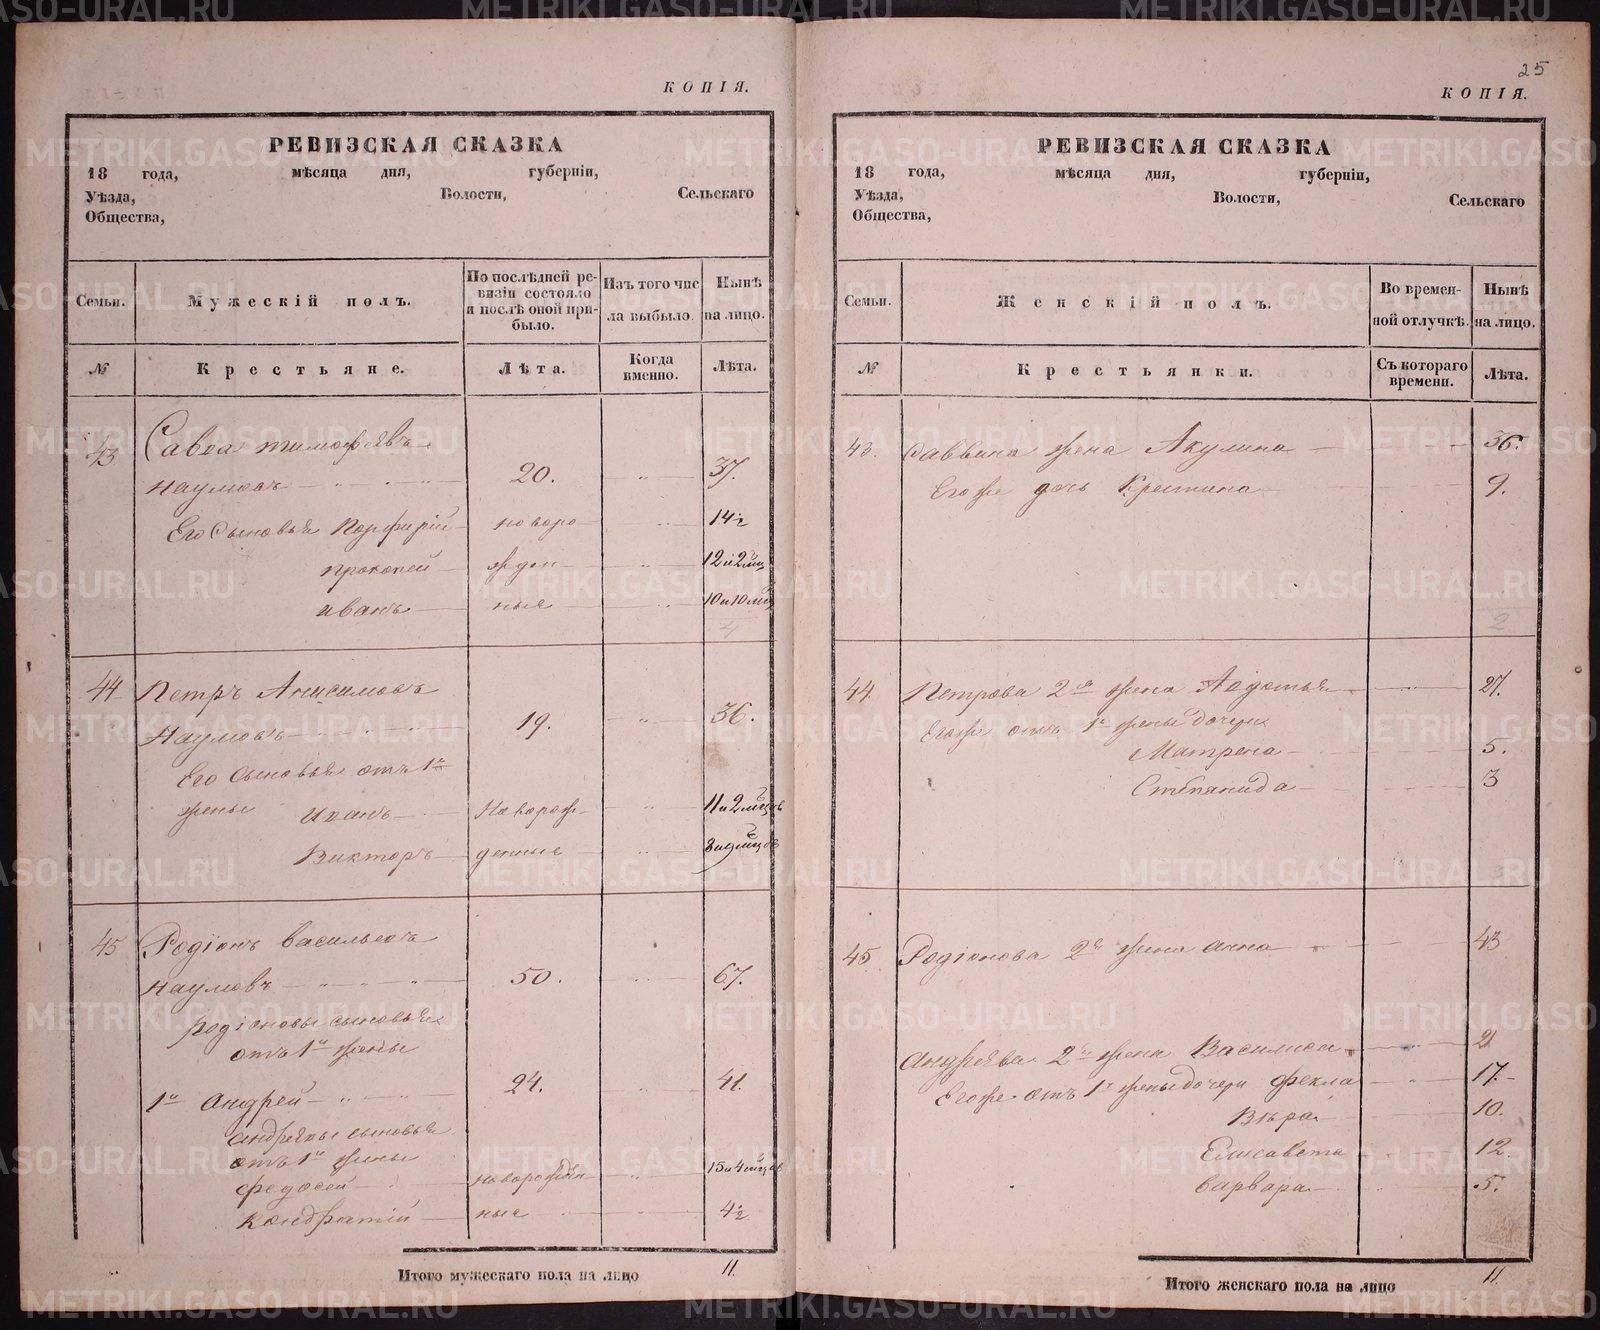 КОПІЯ.
РЕВИЗСКАЯ СКАЗКА
18 года, мѣсяца дня, губерніи,
Уѣзда, Волости, Сельскаго
Общества,
Семьи. Мужескій полъ. По послѣдней ревизіи состояло и послѣ оной прибыло. Изъ того числа выбыло. Нынѣ на лицо.
№ Крестьяне. Лѣта. Когда именно. Лѣта.
43 Савва тимофѣевъ
Наумовъ 20. 37.
Его Сыновья Порфирій новоро 14½
прокопей жден 12 и 2 мц
иванъ ныя 10 и 10 мц
4
44 Петръ Анисимовъ
Наумовъ 19. 36.
Его Сыновья отъ 1й
жены Иванъ Новорож 11 и 2 мцовъ
Викторъ денные
45 Родіонъ Васильевъ
Наумовъ 50. 67.
Родіоновы сыновья
отъ 1й жены
1й Андрей 24. 41.
Андреевы сыновья
отъ 1й жены
федосей новорожден 15 и 4 мцовъ
Кондратій ные 4½
Итого мужескаго пола на лицо 11.
25
КОПІЯ.
РЕВИЗСКАЯ СКАЗКА
18 года, мѣсяца дня, губерніи,
Уѣзда, Волости, Сельскаго
Общества,
Семьи. Женскій полъ. Во временной отлучкѣ. Нынѣ на лицо.
№ Крестьянки. Съ котораго времени. Лѣта.
43. Саввина жена Акулина 36.
Егоже дочь Крестина 9.
2
44. Петрова 2я жена Авдотья 27.
Егоже отъ 1й жены дочери
Матрена 5.
Степанида 3
45 Родіонова 2я жена анна 43
Андреева 2я жена Василиса
Егоже отъ 1й жены дочери фекла 17.
Вѣра 10.
Елисавета 12.
варвара 5.
Итого женскаго пола на лицо 11.
METRIKI.GASO-URAL.RU